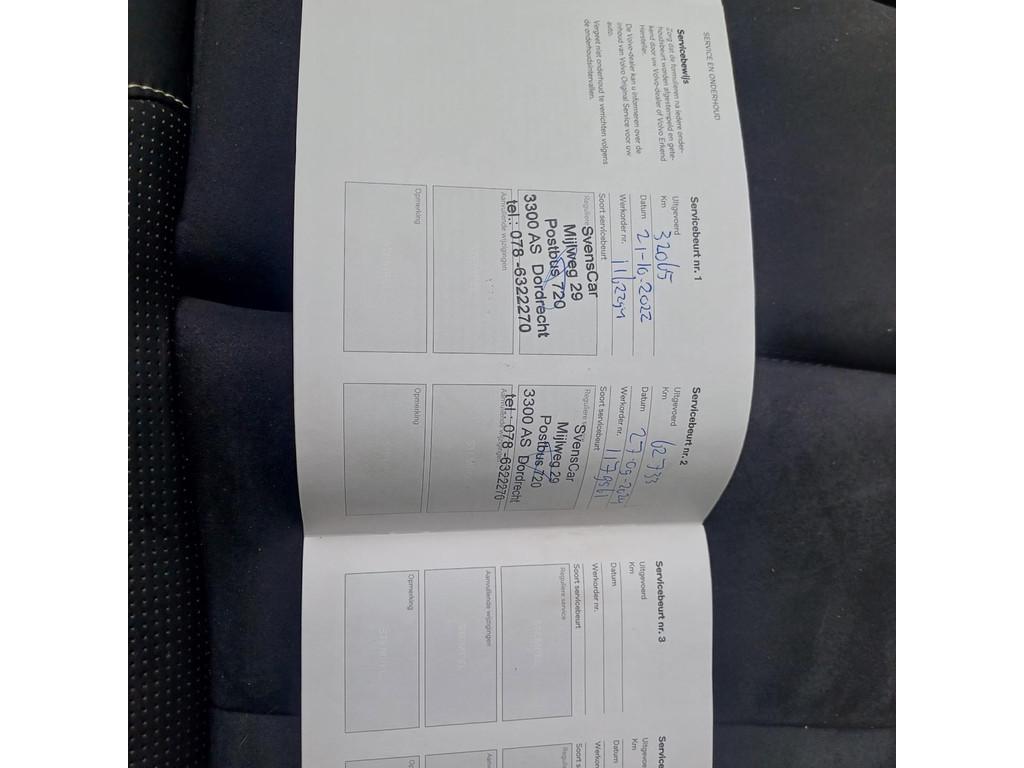 SERVICE EN ONDERHOUD
Servicebewijs
Zorg dat de formulieren na iedere onder-
houdsbeurt worden afgestempeld en gete-
kend door uw Volvo-dealer of Volvo Erkend
Hersteller.
De Volvo-dealer kan u informeren over de
inhoud van Volvo Original Service voor uw
auto.
Vergeet niet onderhoud te verrichten volgens
de onderhoudsintervallen.
Servicebeurt nr. 1
Uitgevoerd
Km 32065
Datum 21-10-2022
Werkorder nr.
Soort servicebeurt
Reguliere
SvensCar
Mijlweg 29
Postbus 720
3300 AS Dordrecht
tel.: 078-6322270
Aanvullende wijzigingen
Opmerking
Servicebeurt nr. 2
Uitgevoerd
Km 62733
Datum 27-09-
Werkorder nr.
Soort servicebeurt
Reguliere
SvensCar
Mijlweg 29
Postbus 720
3300 AS Dordrecht
tel.: 078-6322270
Aanvullende wijzigingen
Opmerking
Servicebeurt nr. 3
Uitgevoerd
Km
Datum
Werkorder nr.
Soort servicebeurt
Reguliere service
Aanvullende wijzigingen
Opmerking
Servicebe
Uitgevoe
Km
Datum
Werkor
Soort s
Regul
Aan
Op